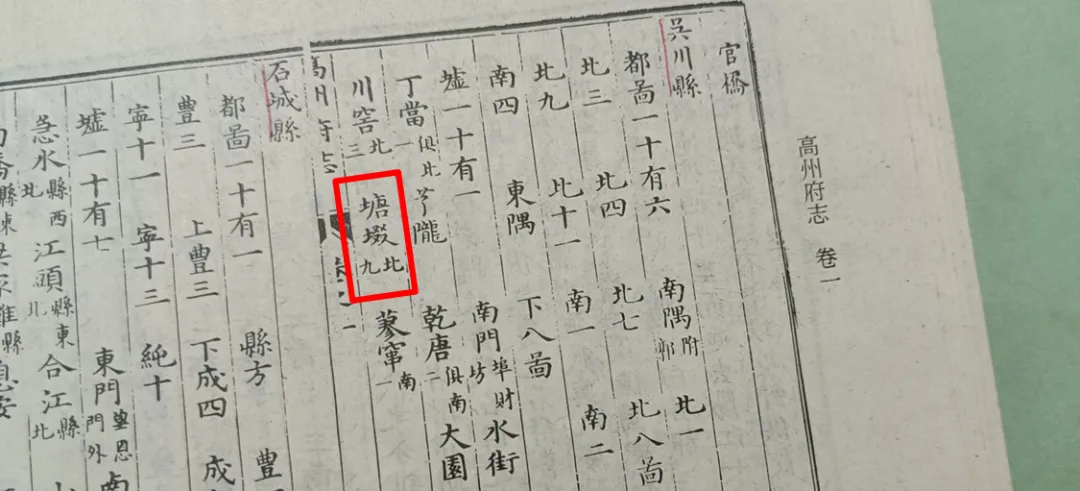 高州府志 卷一
官橋
吳川縣
都啚一十有六 南隅附郭 北一
北三 北四 北七 北八啚
北九 北十一 南一 南二
南四 東隅 下八啚
墟一十有一 南門埠財坊 水街
丁當一俱北 芋隴 乾唐二俱南 大園
川窖北三 塘㙍北九 蓼窜南一
石城縣
都啚一十有一 縣方 豊
豊三 上豊三 下成四 成
寧十一 寧十三 純十
墟一十有七 東門望恩門外 南
急水縣西北 江頭縣東北 合江縣北